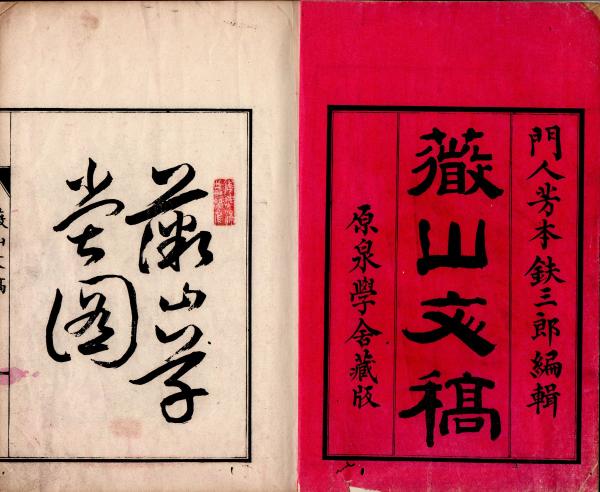 門人芳本鉄三郎編輯
薇山文稿
原泉學舍藏版
薇山草
堂図
薇山文稿